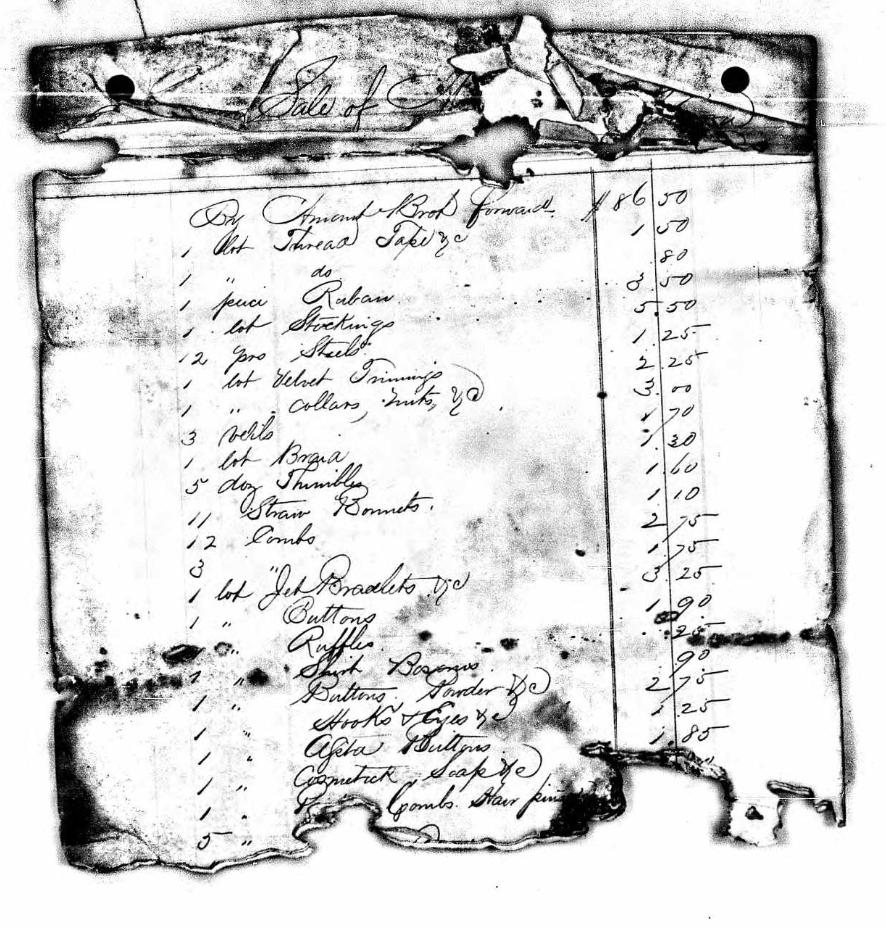 Sale of
By Amount Brot forward $ 86 50
1 lot Thread Tape &c 1 50
1 " do 80
1 piece Ruban 3 50
1 lot Stockings 5.50
12 prs Steels 1.25
1 lot Velvet Trimmings 2 25
1 " collars, &c 3.00
3 veils 1 70
1 lot Braid 1 30
5 doz Thimbles 1 60
11 Straw Bonnets. 1 10
12 Combs 2 75
3 " 1 75
1 lot Jet Bracelets &c 3 25
1 " Buttons 1 90
" Ruffles 25
1 " Shirt Bosoms .90
1 " Buttons. Powder &c 2 75
1 " Hooks & Eyes &c 1 25
1 " Agate Buttons 1.85
1 " Cosmetick Soap &c
1 " Combs. Hair pins
5 "